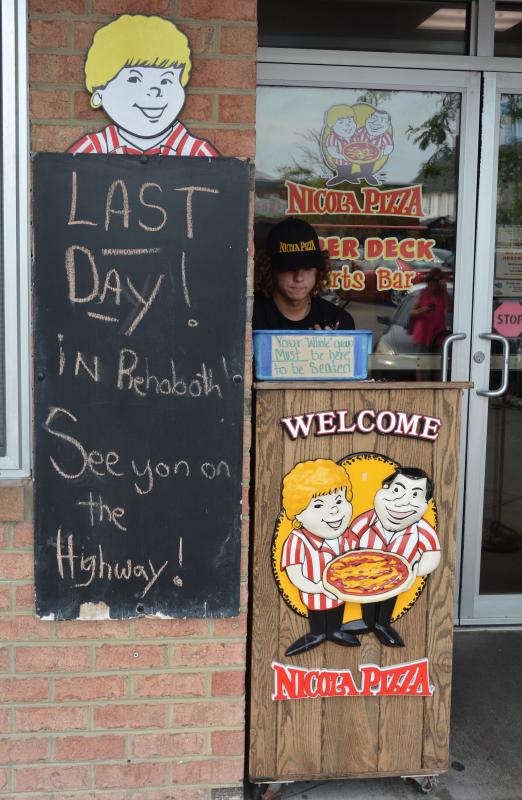 LAST
DAY!
iN Rehoboth!
See you on
the
Highway!
NICOLA PIZZA
PER DECK
rts Bar
NICOLA PIZZA
Your "Whole" group
MUST be here
to be Seated
STOP
WELCOME
NICOLA PIZZA